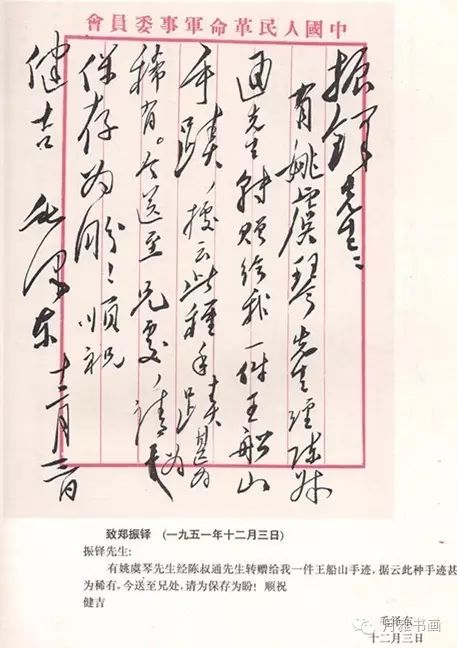 中國人民革命軍事委員會
振鐸先生：
有姚虞琴先生經陳叔
通先生轉贈給我一件王船山
手蹟，據云此種手蹟甚為
稀有。今送至兄處，請為
保存为盼！順祝
健吉 毛澤东 十二月三日
致郑振铎 (一九五一年十二月三日)
振铎先生：
有姚虞琴先生经陈叔通先生转赠给我一件王船山手迹，据云此种手迹甚
为稀有，今送至兄处，请为保存为盼！顺祝
健吉
毛泽东
十二月三日
月雅书画